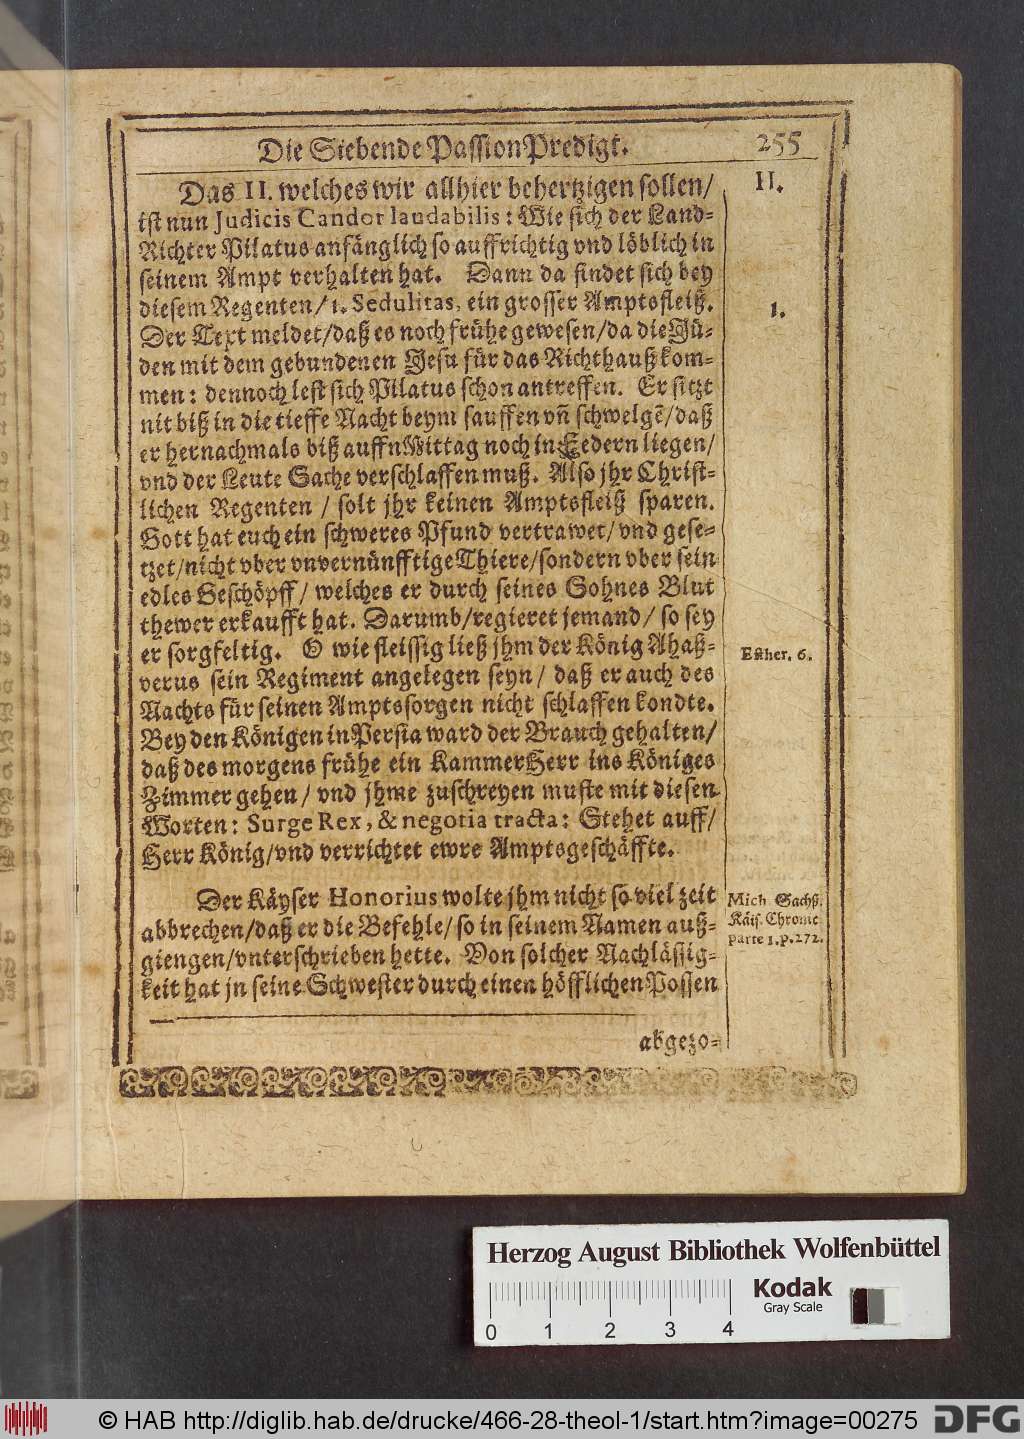 Die Siebende PassionPredigt. 255
Das II. welches wir allhier behertzigen sollen/
II.
ist nun Judicis Candor laudabilis: Wie sich der Land-
Richter Pilatus anfänglich so auffrichtig vnd löblich in
seinem Ampt verhalten hat. Dann da findet sich bey
diesem Regenten/ 1. Sedulitas, ein grosser Amptsfleiß.
1.
Der Text meldet/daß es noch frühe gewesen/da die Jü-
den mit dem gebundenen Jesu für das Richthauß kom-
men: dennoch lest sich Pilatus schon antreffen. Er sitzt
nit biß in die tieffe Nacht beym sauffen vñ schwelgẽ/daß
er hernachmals biß auffn Mittag noch in Federn liegen/
vnd der Leute Sache verschlaffen muß. Also jhr Christ-
lichen Regenten / solt jhr keinen Amptsfleiß sparen.
Gott hat euch ein schweres Pfund vertrawet/ vnd gese-
tzet/nicht vber vnvernünfftige Thiere/sondern vber sein
edles Geschöpff/ welches er durch seines Sohnes Blut
thewer erkaufft hat. Darumb/regieret jemand/ so sey
er sorgfeltig. O wie fleissig ließ jhm der König Ahaß-
Esther. 6.
verus sein Regiment angelegen seyn/ daß er auch des
Nachts für seinen Amptssorgen nicht schlaffen kondte.
Bey den Königen in Persia ward der Brauch gehalten/
daß des morgens frühe ein KammerHerr ins Königes
Zimmer gehen/ vnd jhme zuschreyen muste mit diesen
Worten: Surge Rex, & negotia tracta: Stehet auff/
Herr König/vnd verrichtet ewre Amptsgeschäffte.
Der Käyser Honorius wolte jhm nicht so viel zeit
abbrechen/daß er die Befehle/ so in seinem Namen auß-
giengen/vnterschrieben hette. Von solcher Nachlässig-
keit hat jn seine Schwester durch einen höfflichen Possen
Mich. Sachß.
Käis. Chronic.
parte 1. p. 272.
abgezo-
Herzog August Bibliothek Wolfenbüttel
Kodak
Gray Scale
0 1 2 3 4
© HAB http://diglib.hab.de/drucke/466-28-theol-1/start.htm?image=00275 DFG